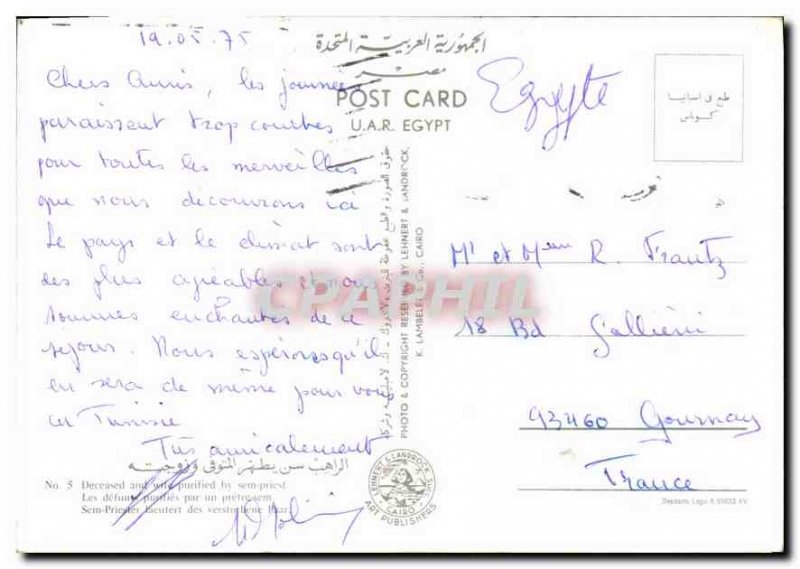 19.05.75
Chers amis, les journées
paraissent trop courtes
pour toutes les merveilles
que nous découvrons ici
Le pays et le climat sont
des plus agréables et nous
sommes enchantés de ce
séjour. Nous espérons qu'il
en sera de même pour vous
en Tunisie
Très amicalement
الجمهورية العربية المتحدة
مصر
POST CARD
U.A.R. EGYPT
Egypte
طبع فى اسبانيا
Mr et Mme R. Frantz
18 Bd Galliéni
93460 Gournay
France
CPAPHIL
PHOTO & COPYRIGHT RESERVED BY LEHNERT & LANDROCK,
K. LAMBELET & Co., CAIRO
الراهب سن يطهر المتوفى وزوجيته
No. 5 Deceased and wife purified by sem-priest.
Les défunts purifiés par un prêtre sem.
Sem-Priester läutert das verstorbene Paar.
LEHNERT & LANDROCK
CAIRO
ART PUBLISHERS